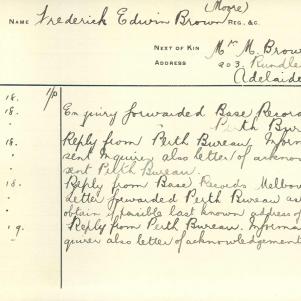 (Moore)
NAME Frederick Edwin Brown REG. &C.
NEXT OF KIN Mrs M. Brow
ADDRESS 203 Rundle
Adelaide
18. I/P Enquiry forwarded Base Recor
18. Perth Bur
18. Reply from Perth Bureau. Inform
" sent Inquirer also letter of acknow
" sent Perth Bureau.
18. Reply from Base Records Melbou
" Letter forwarded Perth Bureau as
" obtain if possible last known address of
19. Reply from Perth Bureau. Informa
" quirer also letter of acknowledgement